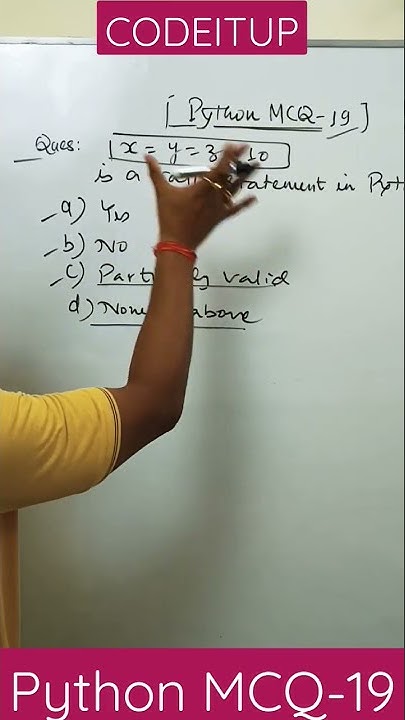 CODEITUP
[ Python MCQ-19 ]
Ques: x = y = z 10
is a statement in
a) Yes
b) No
c) Partially valid
d) None above
Python MCQ-19